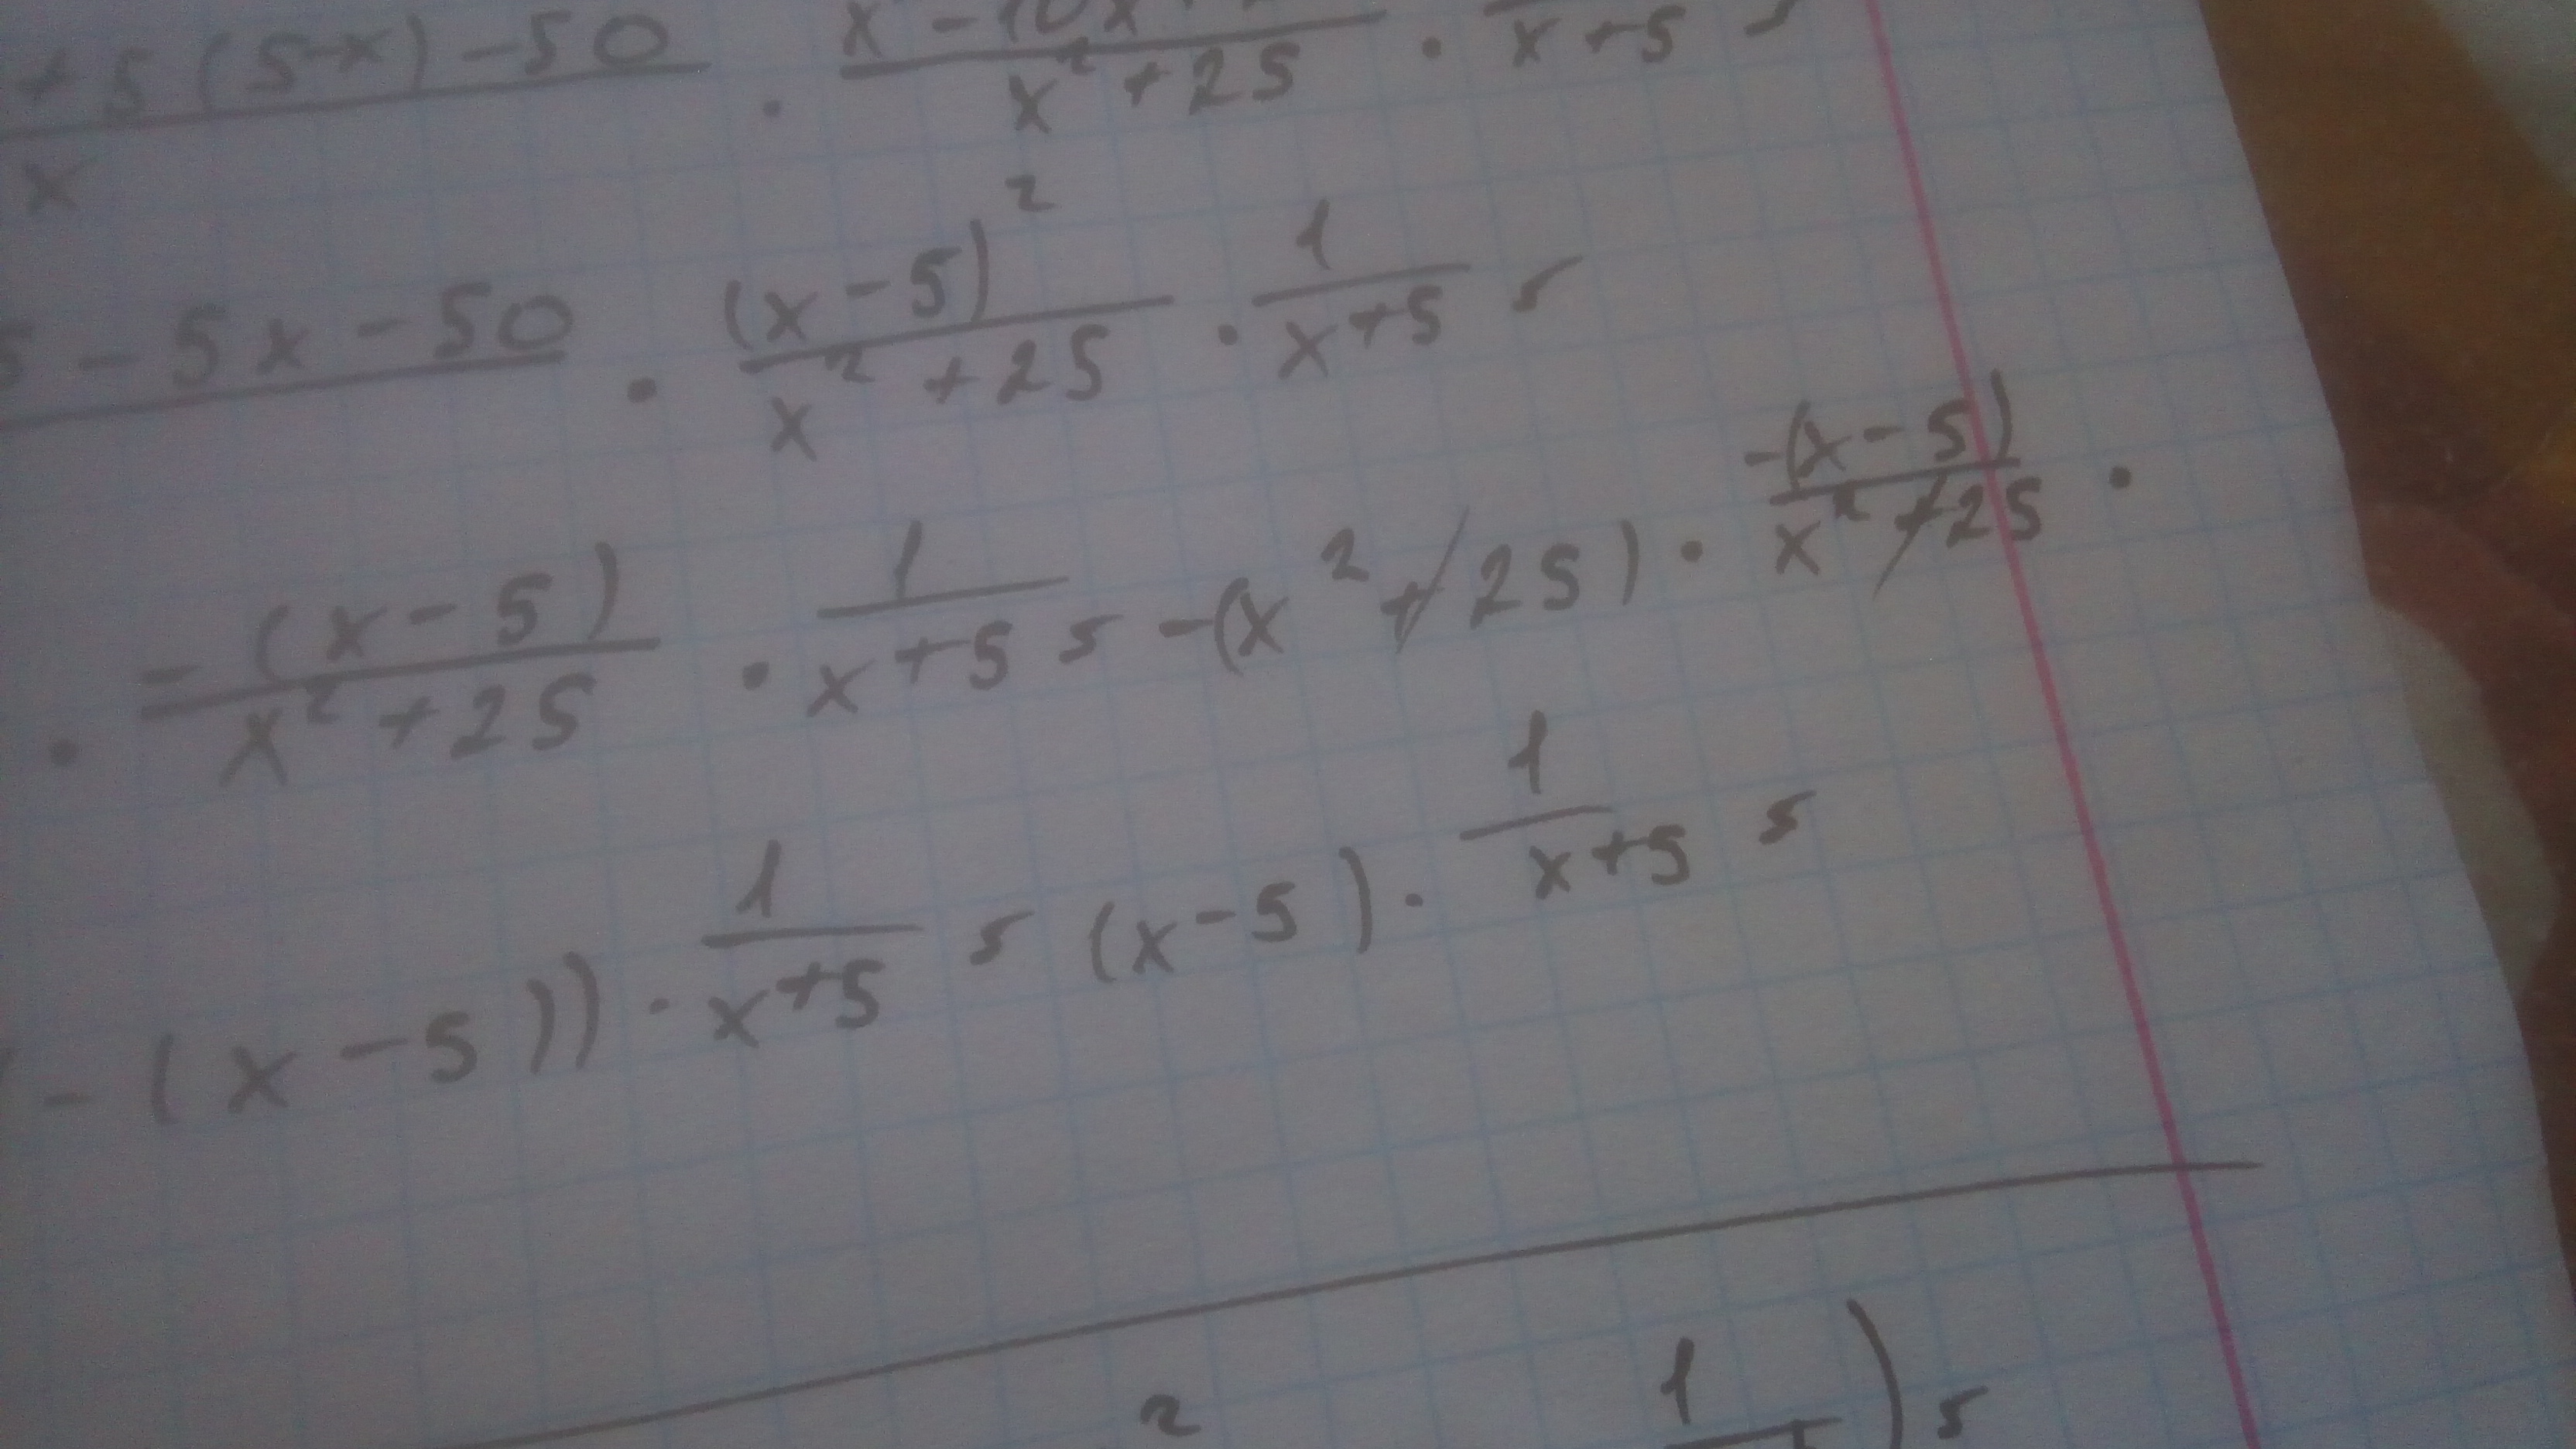 + 5 (5-x) - 50 / x · x - 10x / x² + 25 · / x + 5 =
- 5x - 50 · (x - 5)² / x² + 25 · 1 / x + 5 =
· -(x - 5) / x² + 25 · 1 / x + 5 = -(x² + 25) · -(x - 5) / x² + 25 ·
- (x - 5)) · 1 / x + 5 = (x - 5) · 1 / x + 5 =
2 1 ) =